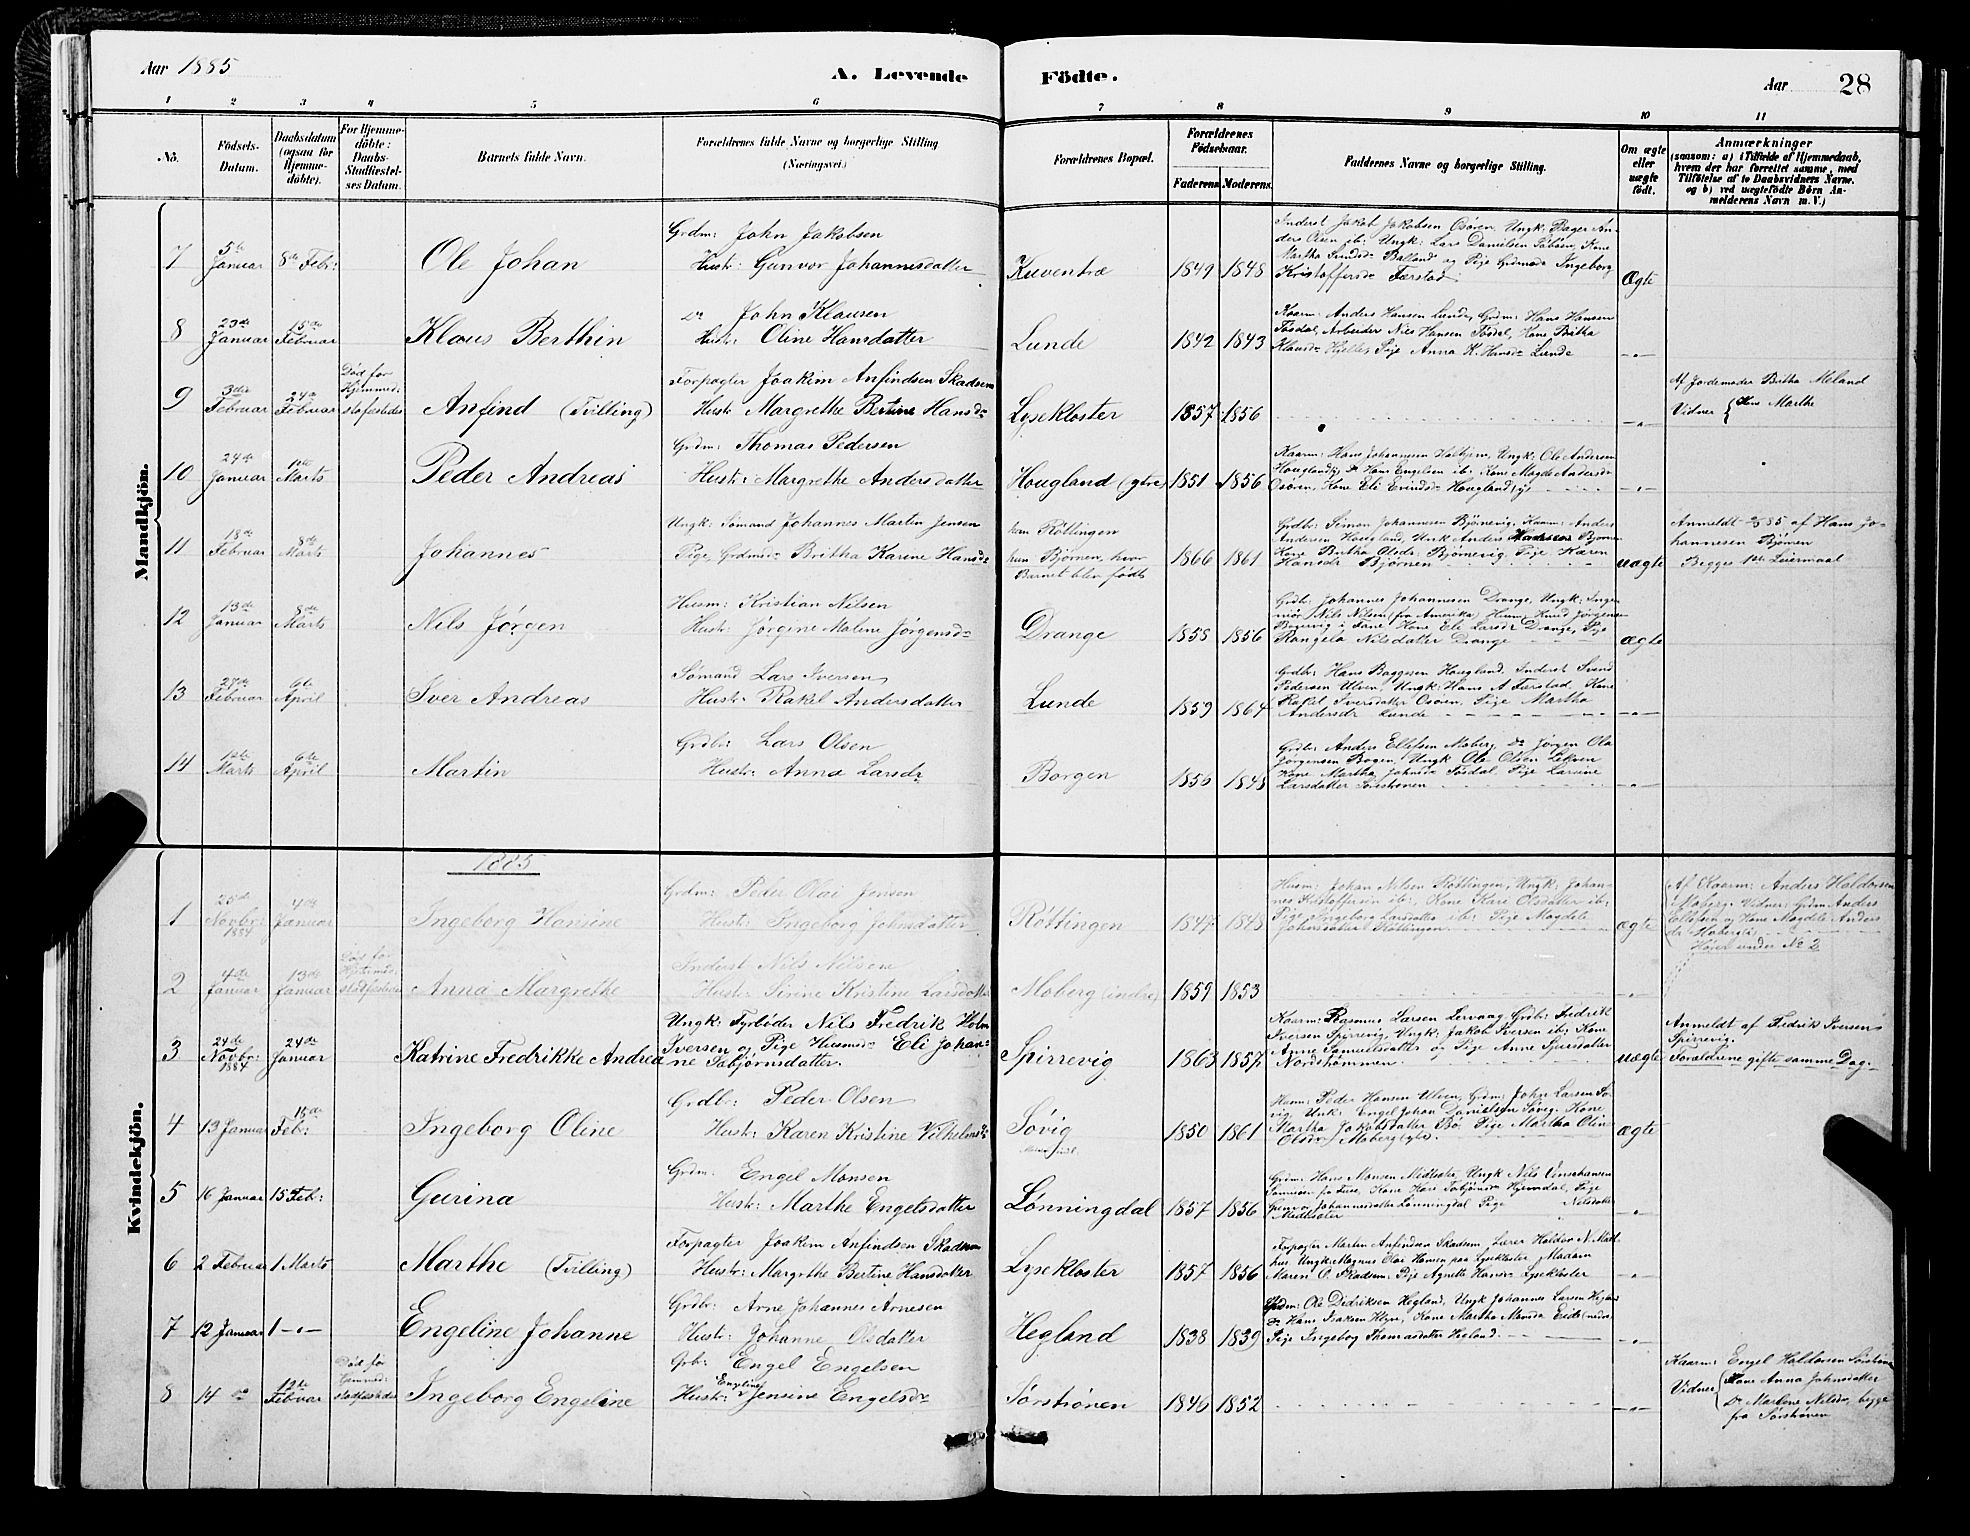 Aar 1885
A. Levende Födte.
Aar 28
1 2 3 4 5 6 7 8 9 10 11
No.
Födsels-Datum.
Daabsdatum (ogsaa for Hjemme-döbte).
For Hjemme-döbte: Daabs-Stadfæstel-ses Datum.
Barnets fulde Navn.
Forældrenes fulde Navne og borgerlige Stilling (Næringsvei.)
Forældrenes Bopæl.
Forældrenes Födselsaar.
Faderens. Moderens.
Faddernes Navne og borgerlige Stilling.
Om ægte eller uægte födt.
Anmærkninger
(saasom: a) i Tilfælde af Hjemmedaab, hvem der har forrettet samme, med Tilföielse af to Daabsvidners Navne, og b) ved uægtefödte Börn An-melderens Navn m. V.)
Mandkjön.
7 5te Januar 8de Febr: Ole Johan
Grdm: John Jakobsen
Hustr: Gunvor Johannesdatter
Kuventræ 1849 1848
Inderst Jakob Jakobsen Osören, Ungk: Bager An-
ders Olsen ib: Ungk: Lars Danielsen Kone
Martha Balland og Pige Ingeborg
Kristoffersdr Færstad
Ægte
8 23de Januar 15de Februar Klaus Berthin
Do John Klausen
Hustr: Oline Hansdatter
Lunde 1842 1843
Kaarm: Anders Hansen Lunde, Grdm: Hans Hansen
Tösdal, Arbeider Nils Hansen Tösdal, Kone Britha
Klausdr Hjelle, Pige Anna K. Hansdr Lunde
-"-
9 3die Februar 24de Februar Död før Hjemmed: stafestedes Anfind (Tvilling)
Forpagter Joakim Anfindsen Skadsem
Hustr Margrethe Bertine Hansdr
Lysekloster 1857 1856
-"-
Af Jordemoder Britha Meland
Vidner { Marthe
10 24de Januar 1ste Marts Peder Andreas
Grdm: Thomas Pedersen
Hustr: Margrethe Andersdatter
Hougland (ytre) 1851 1856
Kaarm: Hans Johannesen Ungk: Ole Andersen
Hougland, Do Hans Engelsen ib: Kone Magde Andersdr
Osören, Kone Eli Hougland
-"-
11 18de Februar 8de Marts Johannes
Ungk: Sömand Johannes Martin Jensen
Pige, Grdmsdr Britha Karine Hansdr
ham Röttingen
hun Björnen, hvor
Barnet blev födt
1866 1861
Grdbr: Simon Johannesen Björnevig, Kaarm: Anders
Andersen Hougland, Unk Anders Hanssen Bjørnen
Kone Britha Olsdr: Björnevig, Pige Karen
Hansdr Björnen
uægte
Anmeldt 85 af Hans Jo-
hannesen Björnen
Begges 1ste Leiermaal
12 13de Januar 8de Marts Nils Jörgen
Husm: Kristian Nilsen
Hustr: Jörgine Maline Jörgensdr
Drange 1858 1856
Grdbr: Johannes Johannesen Drange, Ungk: Inge-
niör Nils Nilsen (fra Amerika) Husm Knud Jörgensen
i Fane, Kone Eli Larsdr Drange, Pige
Rangela Nilsdatter Drange
ægte
13 27de Februar 6te April Iver Andreas
Sömand Lars Iversen
Hustr: Rakel Andersdatter
Lunde 1859 1864
Grdbr: Hans Baggesen Hougland, Inderst Svend
Pedersen Ulven, Ungk: Hans A Færstad, Kone
Rakel Iversdatter Osören, Pige Martha
Andersdr Lunde
-"-
14 1ste Marts 6te April Martin
Grdbr: Lars Olsen
Hustr: Anna Larsdr
Borgen 1856 1848
Grdb: Anders Ellefsen Moberg, Do Jörgen Ola
Jörgensen Bogen, Ungk Ole Olsen Lekven
Kone Martha Johnsdr Tösdal, Pige Larine
Larsdatter Sörstrønen
-"-
1885
Kvindekjön.
1 25de Novbr: 1884 4de Januar Ingeborg Hansine
Grdm: Peder Olai Jensen
Hustr: Ingeborg Johnsdatter
Röttingen 1847 1848
Husm: Johan Nilsen Röttingen, Ungk: Johan-
nes Kristoffersen ib: Kone Kari Olsdatter ib:
Pige Ingeborg Larsdatter ib: Pige Magdele
Johnsdatter Röttingen
ægte
(Af Kaarm: Anders Haldorsen
Moberg. Vidner: Grdm Anders
Ellefsen og Kone Magdele Anders
dr Moberg
Hører under No 2
2 4de Januar 13de Januar Död før Hjemmed: stadfæstedes Anna Margrethe
Inderst Nils Nilsen
Hustr: Sirine Kristine Larsdatter
Moberg (indre) 1859 1853
-"-
3 24de Novbr: 1884 24de Januar Katrine Fredrikke Andrea
Ungk: Fyrböder Nils Fredrik Holm
Iversen og Pige Husmsdr Eli Johan-
ne Tobjörnsdatter.
Spirrevig 1863 1857
Kaarm: Rasmus Larsen Lervaag, Grdb: Fredrik
Iversen Spirrevig, Ungk: Jakob Iversen ib: Kone
Anne Samuelsdatter og Pige Anne Sjursdatter
Nordströnen
uægte
Anmeldt af Fredrik Iversen
Spirrevig.
Forældrene gifte samme Dag.
4 13 Januar 15de Feb: Ingeborg Oline
Grdbr: Peder Olsen
Hustr: Karen Kristine Vilhelmsdr
Sövig 1850 1861
Husm: Peder Hansen Ulven, Grdm: John Larsen Sö-
vig, Unk: Engel Johan Danielsen Sövig, Kone
Martha Jakobsdatter Bö, Pige Martha Olin
Olsdr Moberg (ytre).
ægte
5 16 Januar 15 Feb: Gurina
Grdm: Engel Monsen
Hustr: Marthe Engelsdatter
Lönningdal 1857 1856
Grdm: Hans Monsen Midtsæter, Ungk Nils Vinsehansen
fra Fuse, Kone Kari Tobjörnsdr Hjemdal, Pige
Gunvor Johannesdatter Lönningdal Pige Nilsdatter
Midtsæter
-"-
6 2 Februar 1 Marts Marthe (Tvilling)
Forpagter Joakim Anfindsen Skadsem
Hustr: Margrethe Bertine Hansdatter
Lysekloster 1857 1856
Forpagter Marten Anfindsen Skadsem, Lærer Haldor N.
Ungk: Magnus Olai Hansen paa Lysekloster, Madam
Maren O. Skadsem, Pige Agnette Hansdr Lysekloster
-"-
7 12 Januar 1 -"- Engeline Johanne
Grdbr: Arne Johannes Arnesen
Hustr: Johanne Olsdatter
Hegland 1838 1839
Grdm: Ole Didriksen Hegland, Ungk Johannes Larsen Hegland
Do Hans Isaksen Klyve, Kone Martha Monsdr Eide (nedre)
Pige Ingeborg Thomasdatter Hegland.
-"-
8 14 do 19de Februar Död før Hjemmed: stadfæstedes Ingeborg Engeline
Grb: Engel Engelsen
Hustr: Engeline Jensine Engelsdr
Sörströnen 1846 1852
-"-
Kaarm: Engel Haldorsen Sörströnen
Vidner { Kone Anna Johnsdatter
Do Marlene Nilsdr, begge
fra Sörströnen